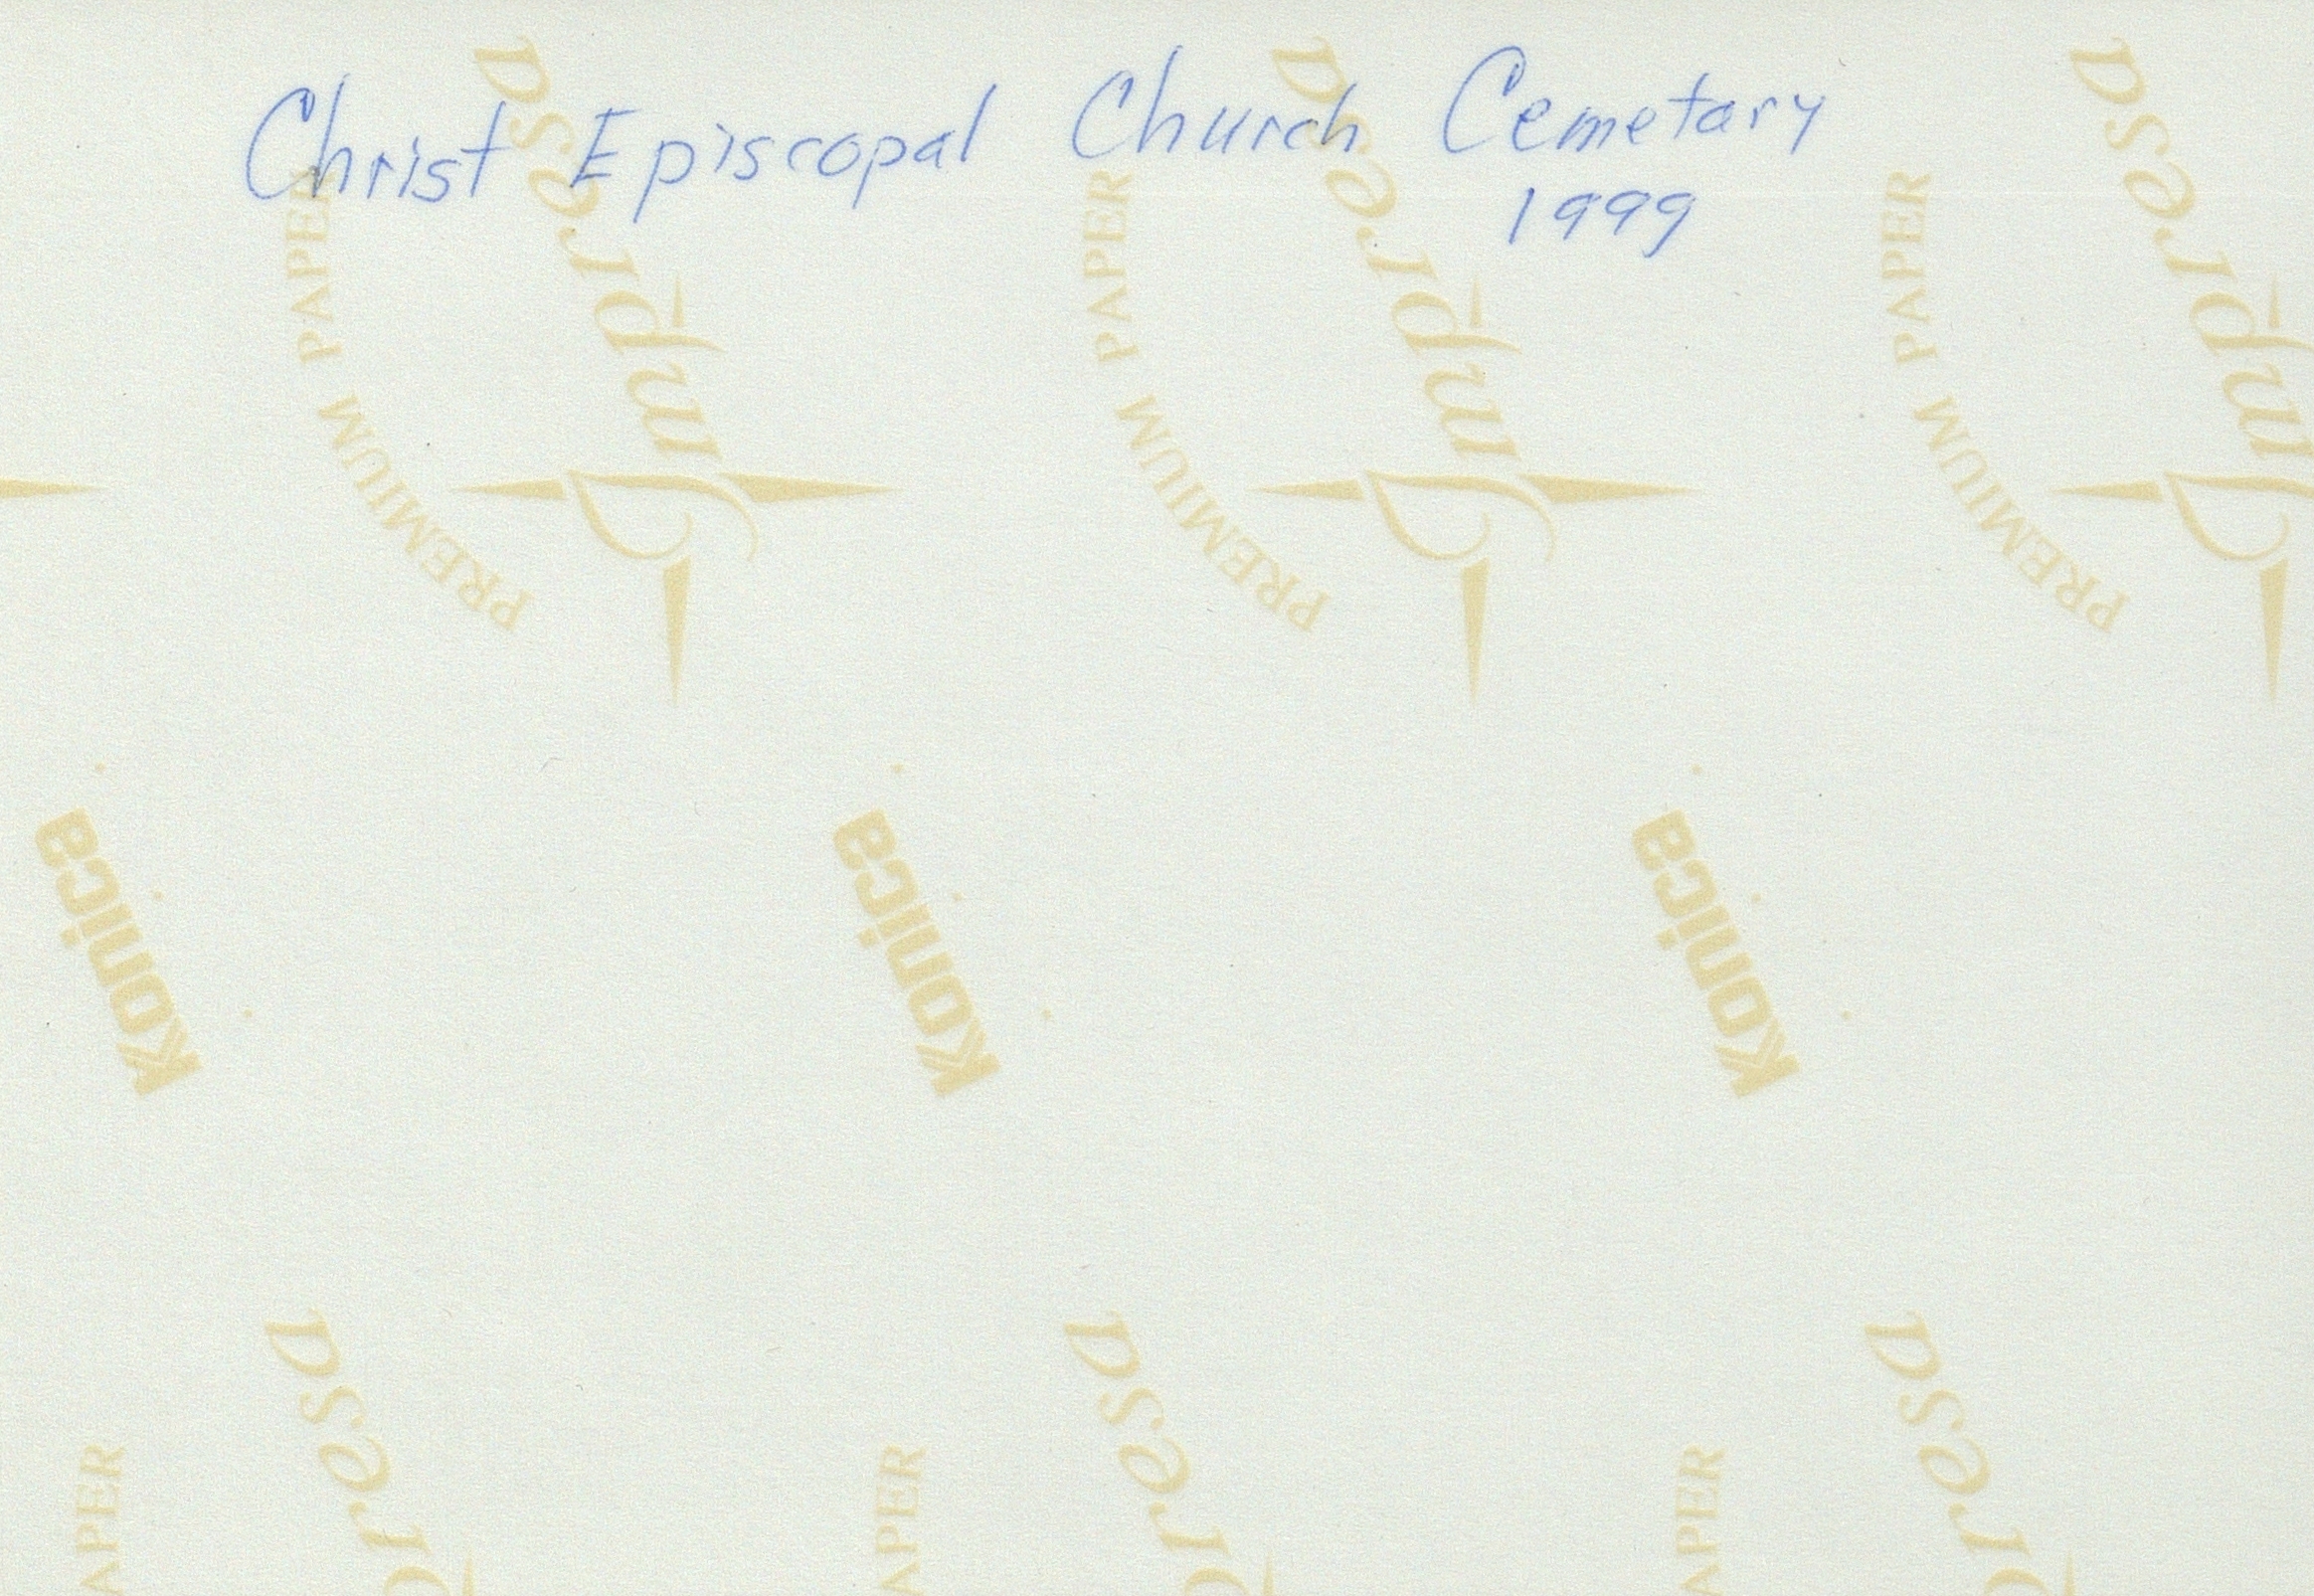 Christ Episcopal Church Cemetary
1999
PREMIUM PAPER
Impresa
PREMIUM PAPER
Impresa
PREMIUM PAPER
Impresa
Konica
Konica
Konica
APER
presa
APER
presa
APER
presa